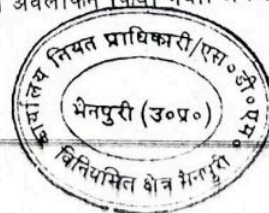 अवलोकन किया गया
कार्यालय नियत प्राधिकारी/एस॰डी॰एम॰
मैनपुरी (उ०प्र०)
विनियमित क्षेत्र मैनपुरी